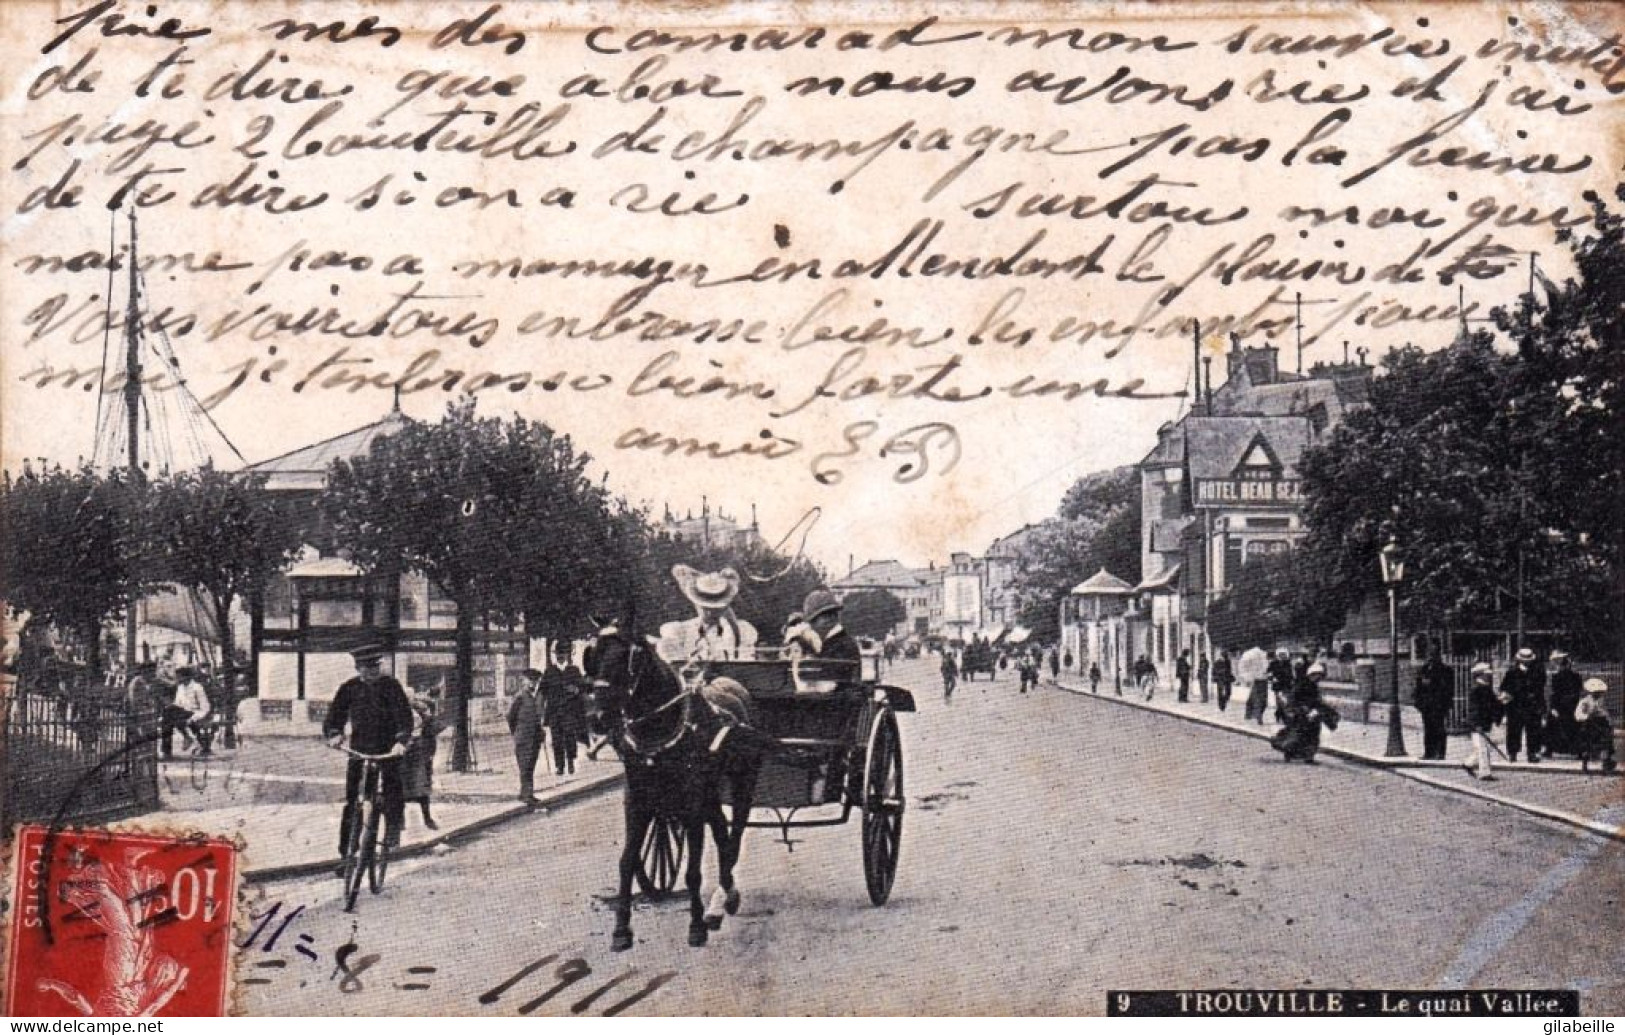 fine mes des camarad mon sauvie inutil
de te dire que abor nous avons rie et j'ai
payé 2 bouteille de champagne pas la peine
de te dire si on a rie surtou moi qui
naime pas a en attendant le plaisir de te
Vous voire tous enbrasse bien les enfants pour
moi je tenbrasse bien forte une
amie EP
HOTEL BEAU SEJ
POSTES
10c
11=
= 8 =
1911
9 TROUVILLE - Le quai Vallée.
gilabeille